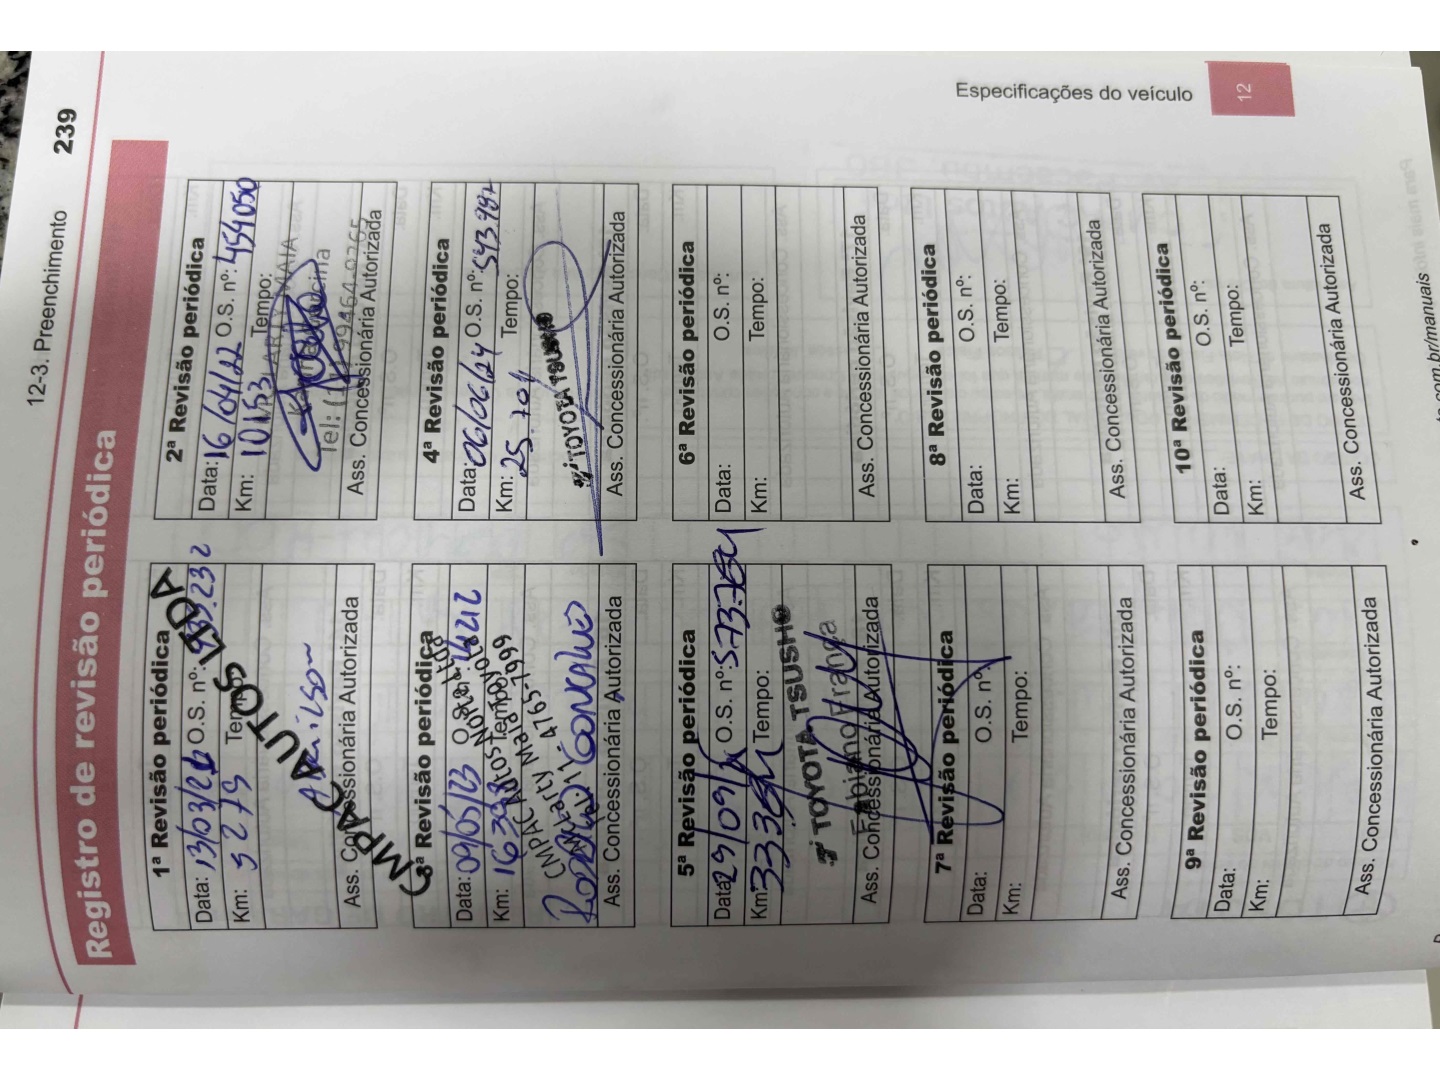 12-3. Preenchimento 239
Registro de revisão periódica
1ª Revisão periódica
Data: 13/03/21 O.S. nº:
Km: 5279 Tempo:
CMPAC AUTOS LTDA
Ass. Concessionária Autorizada
2ª Revisão periódica
Data: 16/04/22 O.S. nº: 454050
Km: 10153 Tempo:
Tel:
Ass. Concessionária Autorizada
3ª Revisão periódica
Data: 09/05/23 O.S. nº:
Km: 16393 Tempo:
CMPAC Autos Norte Ltda
4765-7999
Gonçalves
Ass. Concessionária Autorizada
4ª Revisão periódica
Data: 06/06/24 O.S. nº: 543.982
Km: 25.704 Tempo:
TOYOTA TSUSHO
Ass. Concessionária Autorizada
5ª Revisão periódica
Data: 29/09/ O.S. nº: 573.764
Km: 33364 Tempo:
TOYOTA TSUSHO
Fabiano França
Ass. Concessionária Autorizada
6ª Revisão periódica
Data: O.S. nº:
Km: Tempo:
Ass. Concessionária Autorizada
7ª Revisão periódica
Data: O.S. nº:
Km: Tempo:
Ass. Concessionária Autorizada
8ª Revisão periódica
Data: O.S. nº:
Km: Tempo:
Ass. Concessionária Autorizada
9ª Revisão periódica
Data: O.S. nº:
Km: Tempo:
Ass. Concessionária Autorizada
10ª Revisão periódica
Data: O.S. nº:
Km: Tempo:
Ass. Concessionária Autorizada
Especificações do veículo
12
.com.br/manuais